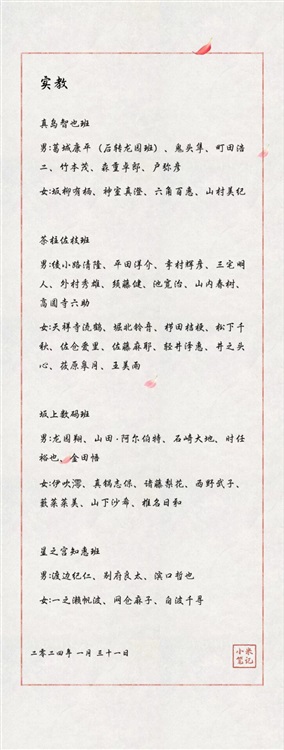 实教
真鸟智也班
男:葛城康平（后转龙园班）、鬼头隼、町田浩
二、竹本茂、森重卓郎、户弥彦
女:坂柳有栖、神室真澄、六角百惠、山村美纪
茶柱佐枝班
男:绫小路清隆、平田洋介、幸村辉彦、三宅明
人、外村秀雄、须藤健、池宽治、山内春树、
高圆寺六助
女:天祥寺流鹤、堀北铃音、栉田桔梗、松下千
秋、佐仓爱里、佐藤麻耶、轻井泽惠、井之头
心、筱原皐月、王美雨
坂上数码班
男:龙园翔、山田·阿尔伯特、石崎大地、时任
裕也、金田悟
女:伊吹澪、真鹤志保、诸藤梨花、西野武子、
薮菜菜美、山下沙希、椎名日和
星之宫知惠班
男:渡边纪仁、别府良太、滨口哲也
女:一之濑帆波、网仓麻子、白波千寻
二零二四年 一月 三十一日
小米
笔记